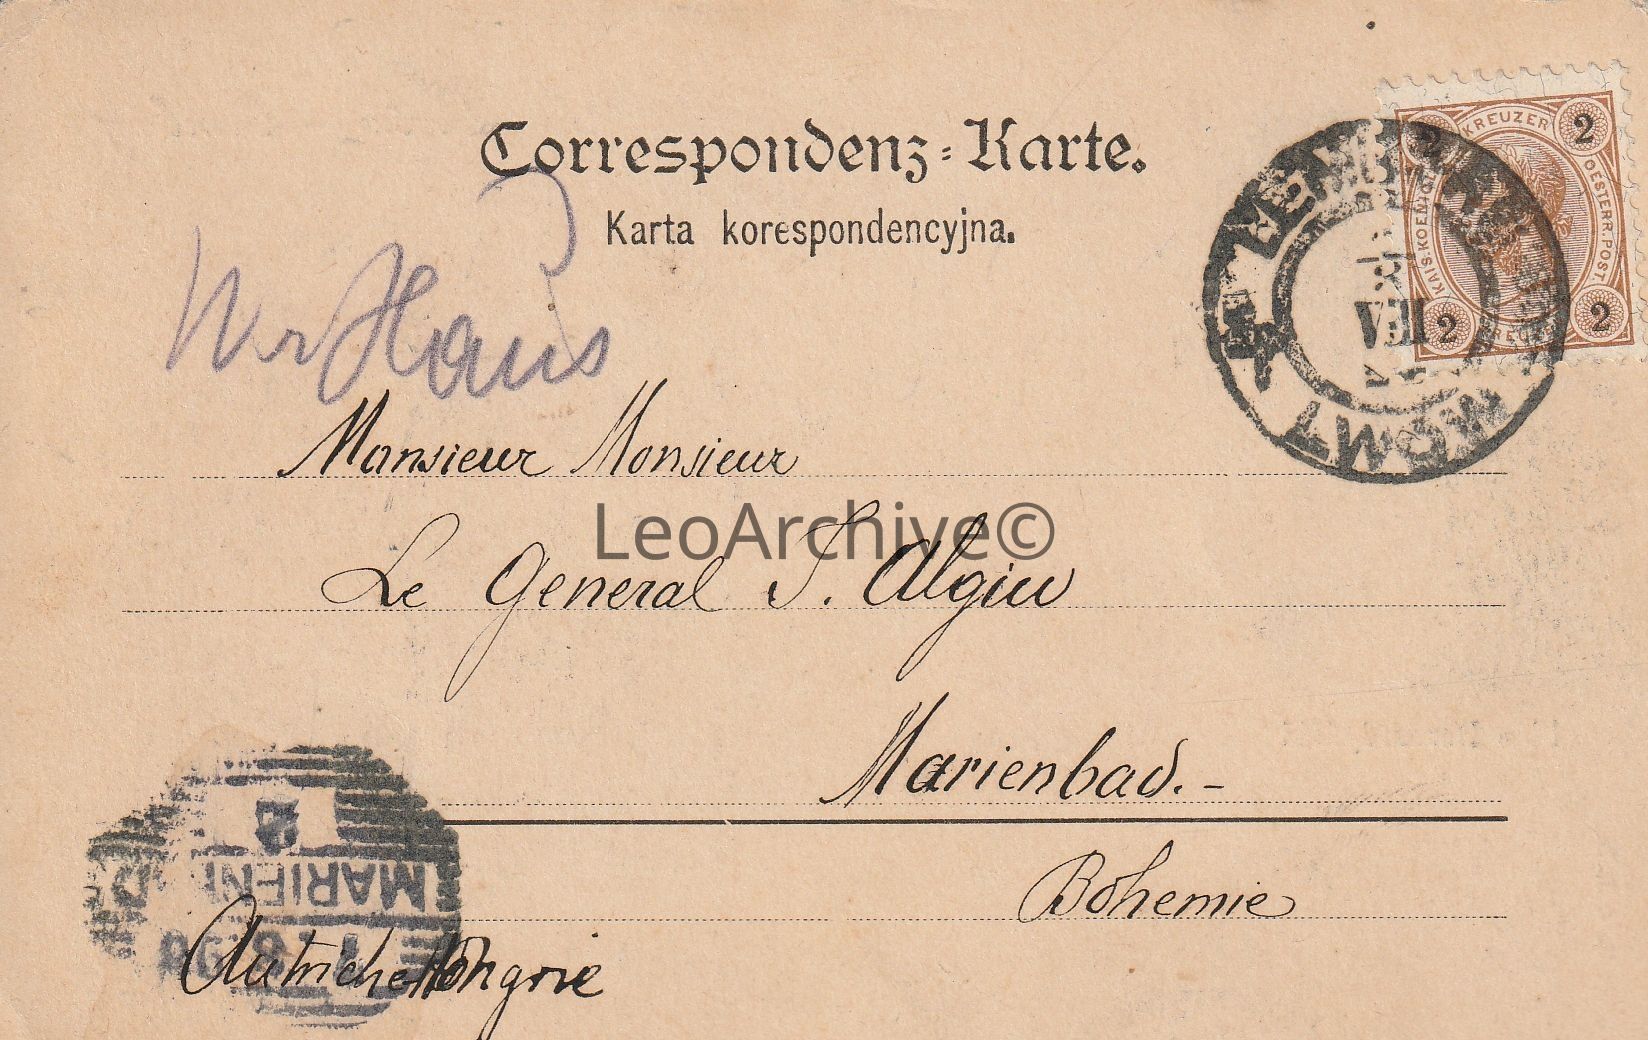 Correspondenz-Karte.
Karta korespondencyjna.
2 KREUZER 2
KAIS. KOENIGL. OESTERR. POST.
2 2
LEMBERG
VIII
LWOW
Haus
Monsieur Monsieur
LeoArchive©
Le General I. Algiu
Marienbad.-
Bohemie
MARIENB
Autriche Hongrie